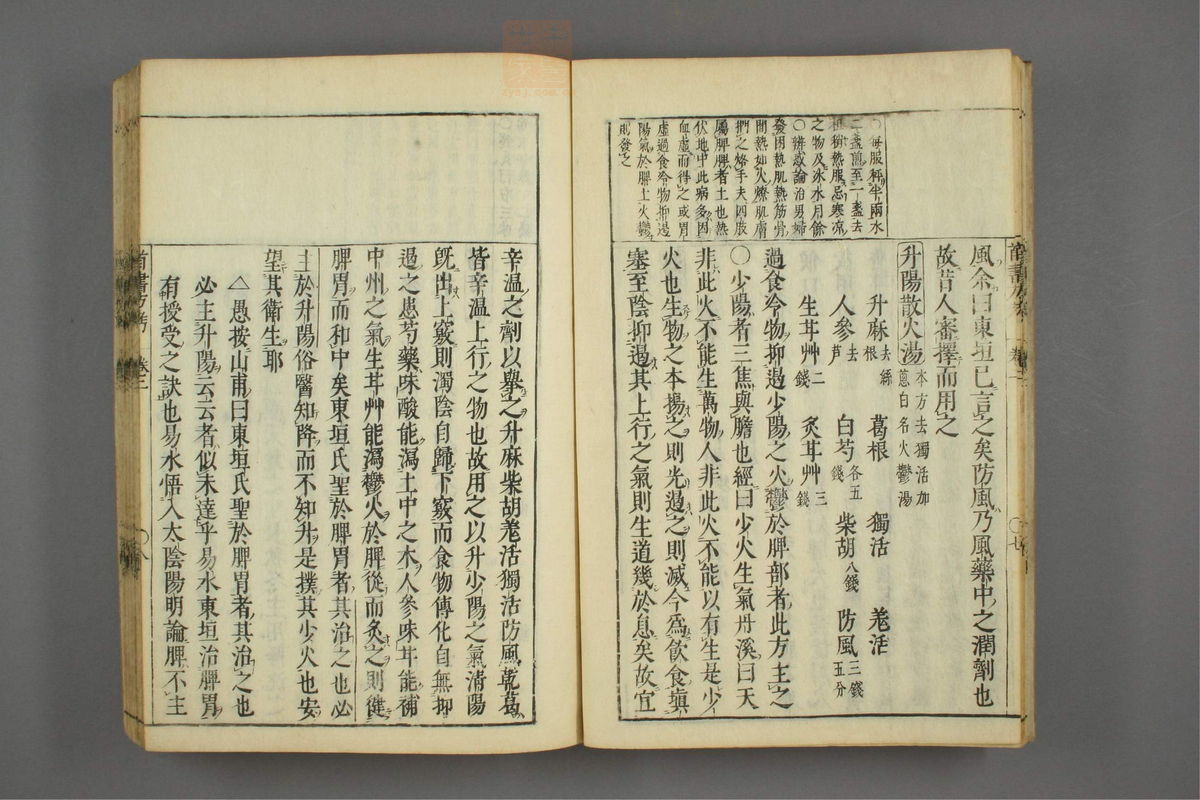 ○每服秤半兩水
二盞煎至一盞去
柤稍熱服忌寒涼
之物及氷水月餘
○辨惑論治男婦
發困熱肌熱筋骨
間熱如火燎肌膚
捫之烙手夫四肢
屬脾脾者土也熱
伏地中此病多因
血虛而得之或胃
虛過食冷物抑遏
陽氣於脾土火鬱
則發之
風余曰東垣已言之矣防風乃風藥中之潤劑也
故昔人審擇而用之
升陽散火湯 本方去獨活加蔥白名火鬱湯
升麻 葛根 獨活 羗活
人參去蘆 白芍各五錢 柴胡八錢 防風三錢五分
生甘艸二錢 炙甘艸三錢
過食冷物抑遏少陽之火鬱於脾部者此方主之
○少陽者三焦與膽也經曰少火生氣丹溪曰天
非此火不能生萬物人非此火不能以有生是少
火也生物之本揚之則光遏之則滅今爲飲食塡
塞至陰抑遏其上行之氣則生道幾於息矣故宜
辛溫之劑以擧之升麻柴胡羗活獨活防風乾葛
皆辛溫上行之物也故用之以升少陽之氣清陽
既出上竅則濁陰自歸下竅而食物傳化自無抑
遏之患芍藥味酸能瀉土中之木人參味甘能補
中州之氣生甘艸能瀉鬱火於脾從而炙之則健
脾胃而和中矣東垣氏聖於脾胃者其治之也必
主於升陽俗醫知降而不知升是撲其少火也安
望其衛生耶
△愚按山甫曰東垣氏聖於脾胃者其治之也
必主升陽云云者似未達乎易水東垣治脾胃
有授受之訣也易水悟入太陰陽明論脾不主
卷三
〇八